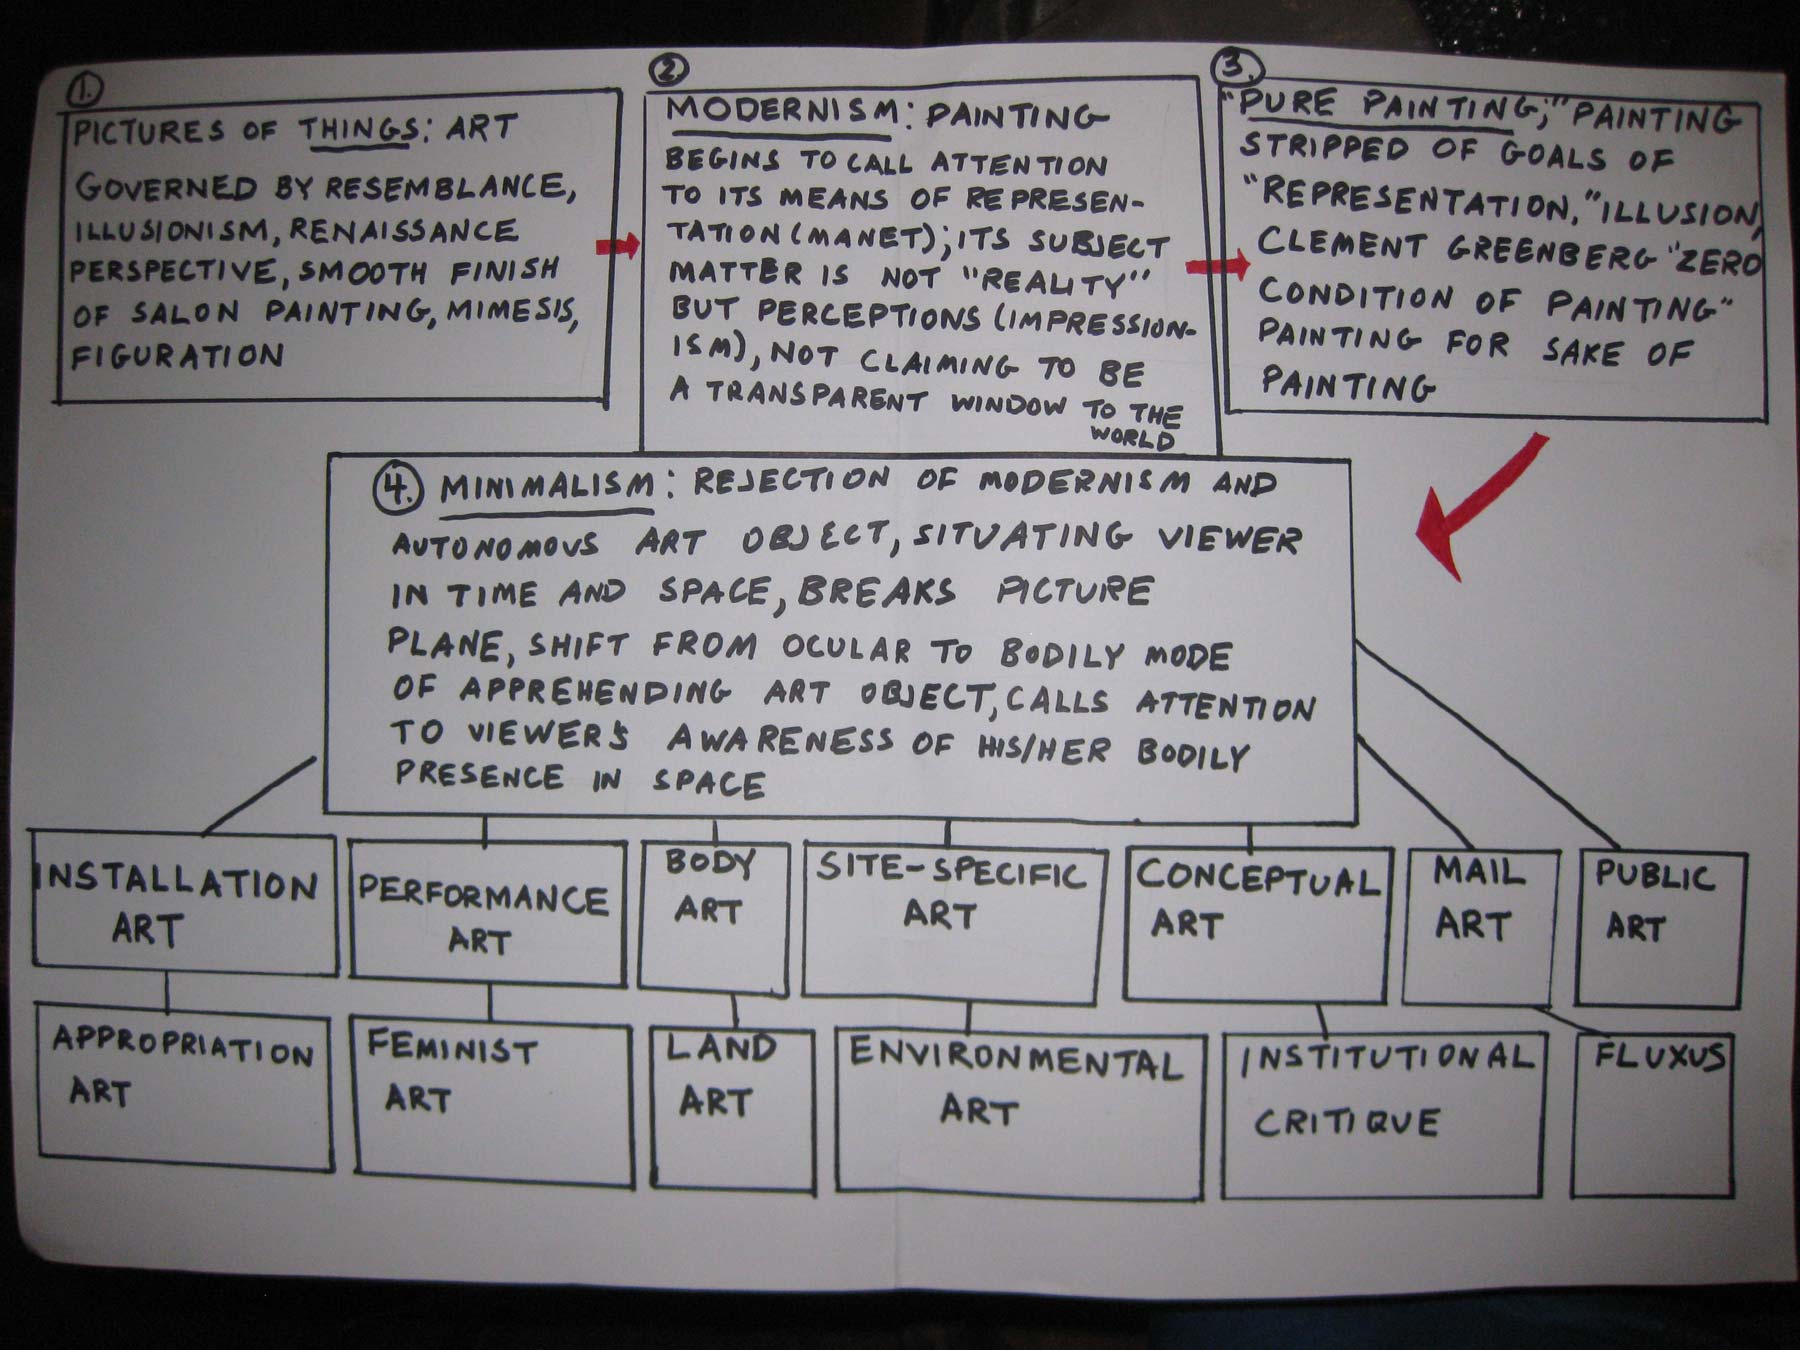 1.
PICTURES OF THINGS: ART
GOVERNED BY RESEMBLANCE,
ILLUSIONISM, RENAISSANCE
PERSPECTIVE, SMOOTH FINISH
OF SALON PAINTING, MIMESIS,
FIGURATION
2.
MODERNISM: PAINTING
BEGINS TO CALL ATTENTION
TO ITS MEANS OF REPRESEN-
TATION (MANET); ITS SUBJECT
MATTER IS NOT "REALITY"
BUT PERCEPTIONS (IMPRESSION-
ISM), NOT CLAIMING TO BE
A TRANSPARENT WINDOW TO THE
WORLD
3.
"PURE PAINTING;" PAINTING
STRIPPED OF GOALS OF
"REPRESENTATION," ILLUSION,
CLEMENT GREENBERG "ZERO
CONDITION OF PAINTING"
PAINTING FOR SAKE OF
PAINTING
4. MINIMALISM: REJECTION OF MODERNISM AND
AUTONOMOUS ART OBJECT, SITUATING VIEWER
IN TIME AND SPACE, BREAKS PICTURE
PLANE, SHIFT FROM OCULAR TO BODILY MODE
OF APPREHENDING ART OBJECT, CALLS ATTENTION
TO VIEWER'S AWARENESS OF HIS/HER BODILY
PRESENCE IN SPACE
INSTALLATION
ART
PERFORMANCE
ART
BODY
ART
SITE-SPECIFIC
ART
CONCEPTUAL
ART
MAIL
ART
PUBLIC
ART
APPROPRIATION
ART
FEMINIST
ART
LAND
ART
ENVIRONMENTAL
ART
INSTITUTIONAL
CRITIQUE
FLUXUS